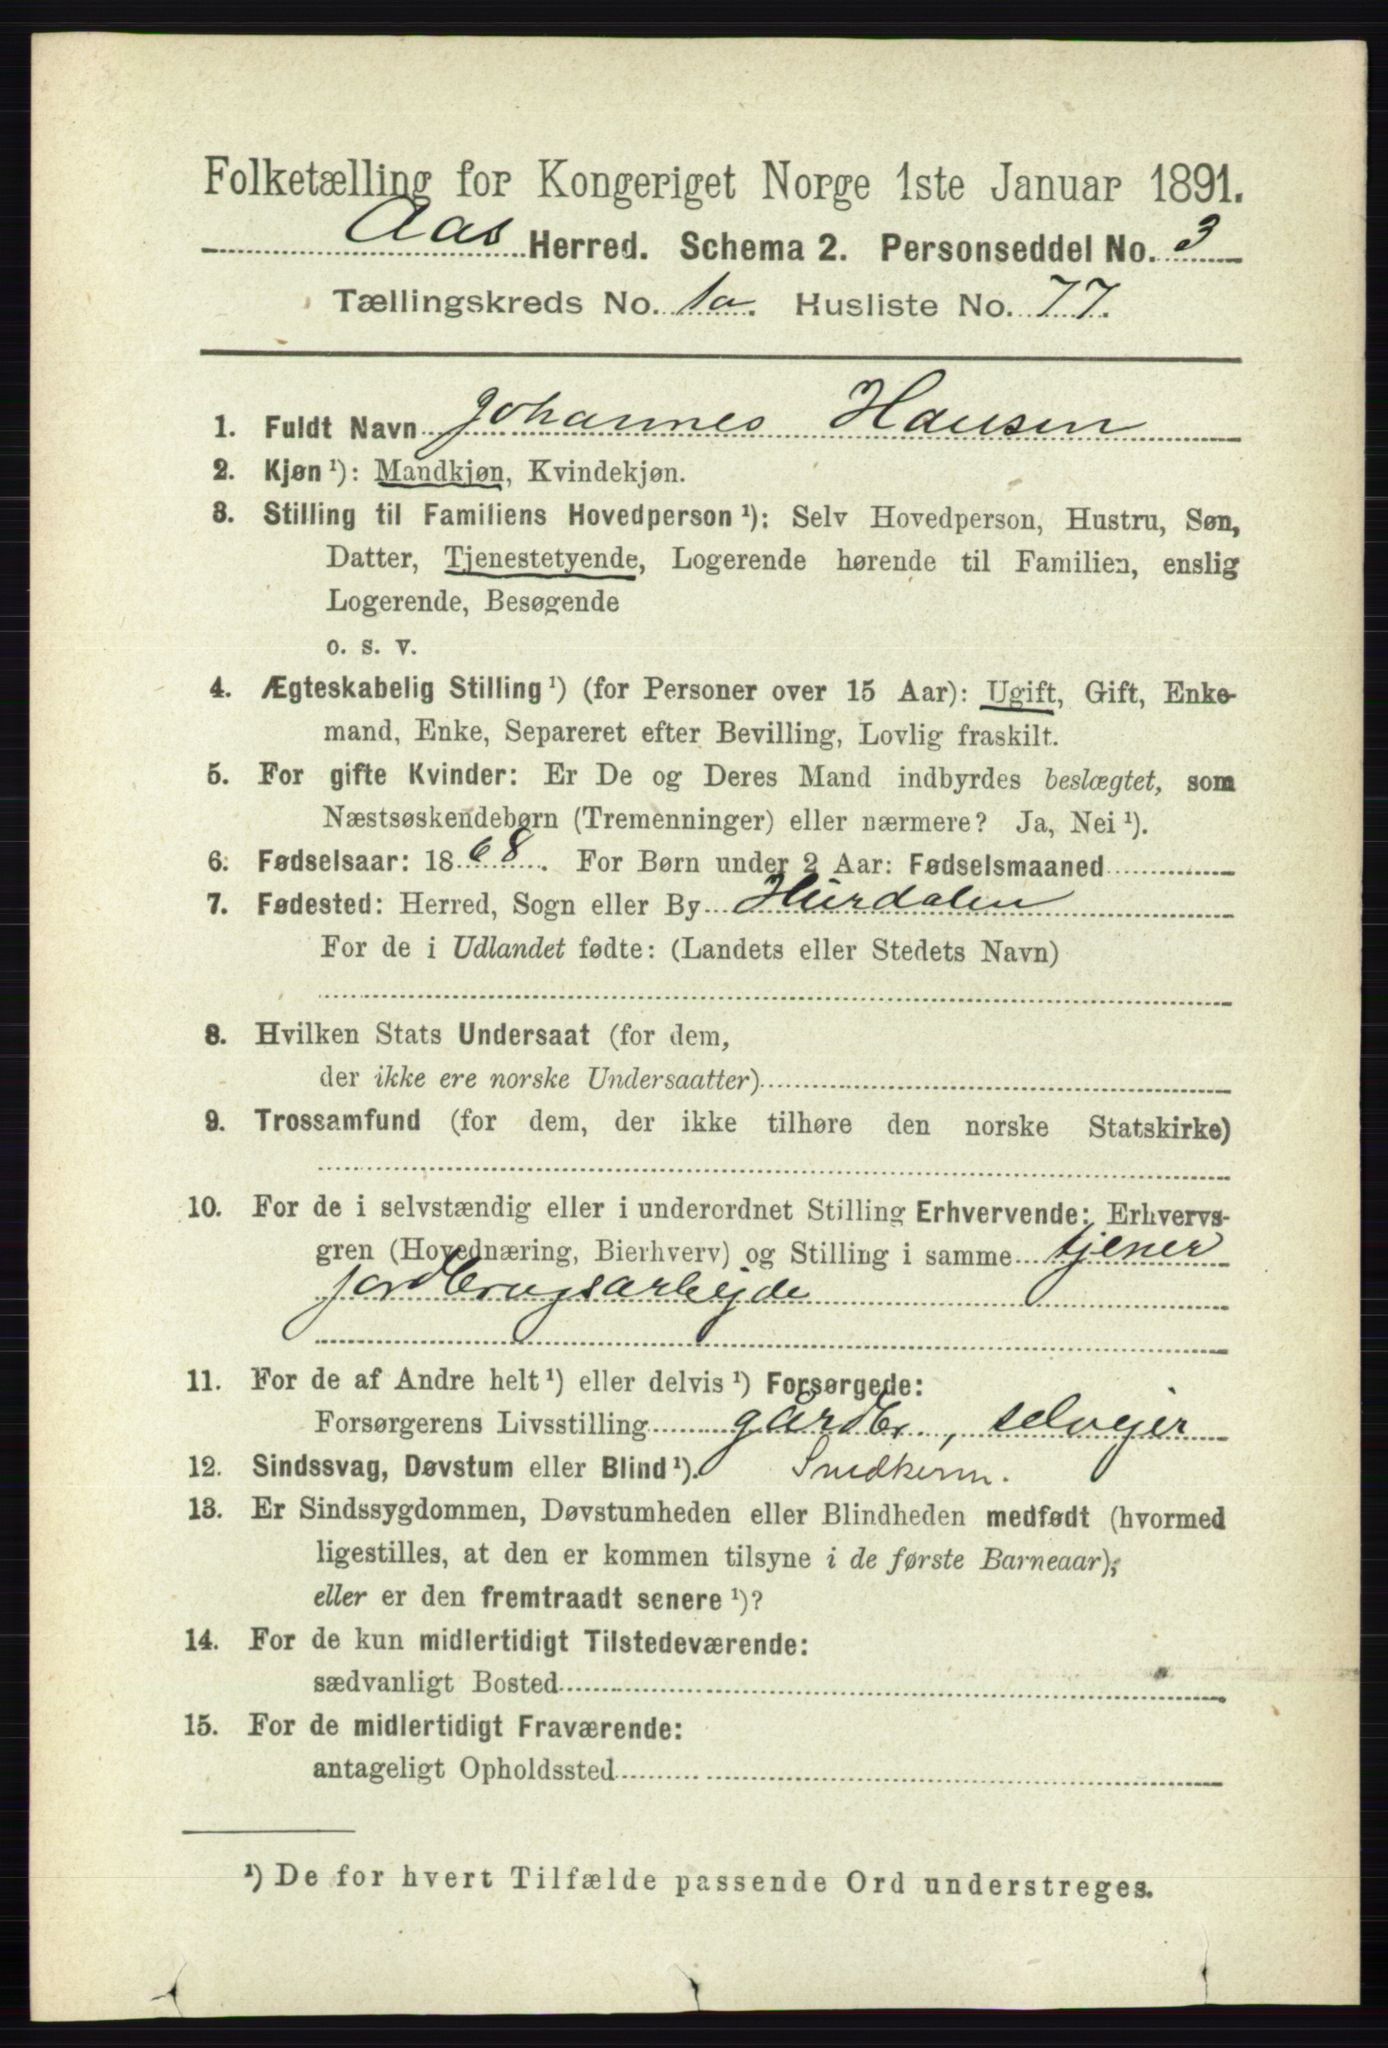 Folketælling for Kongeriget Norge 1ste Januar 1891.
Aas Herred. Schema 2. Personseddel No. 3
Tællingskreds No. 1a. Husliste No. 77.
1. Fuldt Navn Johannes Hansen
2. Kjøn ¹): Mandkjøn, Kvindekjøn.
3. Stilling til Familiens Hovedperson ¹): Selv Hovedperson, Hustru, Søn,
Datter, Tjenestetyende, Logerende hørende til Familien, enslig
Logerende, Besøgende
o. s. v.
4. Ægteskabelig Stilling ¹) (for Personer over 15 Aar): Ugift, Gift, Enke-
mand, Enke, Separeret efter Bevilling, Lovlig fraskilt.
5. For gifte Kvinder: Er De og Deres Mand indbyrdes beslægtet, som
Næstsøskendebørn (Tremenninger) eller nærmere? Ja, Nei ¹).
6. Fødselsaar: 1868. For Børn under 2 Aar: Fødselsmaaned
7. Fødested: Herred, Sogn eller By Hurdalen
For de i Udlandet fødte: (Landets eller Stedets Navn)
8. Hvilken Stats Undersaat (for dem,
der ikke ere norske Undersaatter)
9. Trossamfund (for dem, der ikke tilhøre den norske Statskirke)
10. For de i selvstændig eller i underordnet Stilling Erhvervende: Erhvervs-
gren (Hovednæring, Bierhverv) og Stilling i samme tjener
jordbrugsarbejde
11. For de af Andre helt ¹) eller delvis ¹) Forsørgede:
Forsørgerens Livsstilling gårdbr., selvejer
12. Sindssvag, Døvstum eller Blind ¹).
13. Er Sindssygdommen, Døvstumheden eller Blindheden medfødt (hvormed
ligestilles, at den er kommen tilsyne i de første Barneaar);
eller er den fremtraadt senere ¹)?
14. For de kun midlertidigt Tilstedeværende:
sædvanligt Bosted
15. For de midlertidigt Fraværende:
antageligt Opholdssted
¹) De for hvert Tilfælde passende Ord understreges.